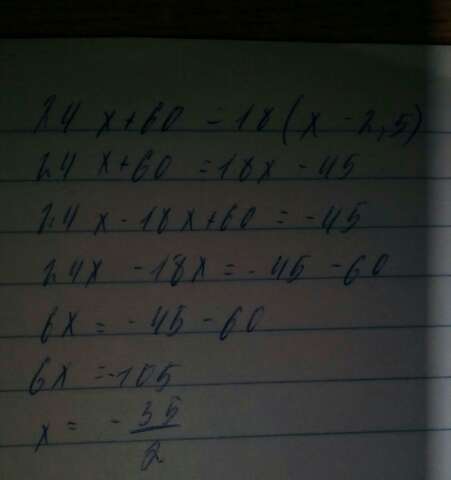 24 x + 60 = 18 (x - 2,5)
24 x + 60 = 18x - 45
24 x - 18x + 60 = -45
24x - 18x = -45 - 60
6x = -45 - 60
6x = -105
x = - 35/2